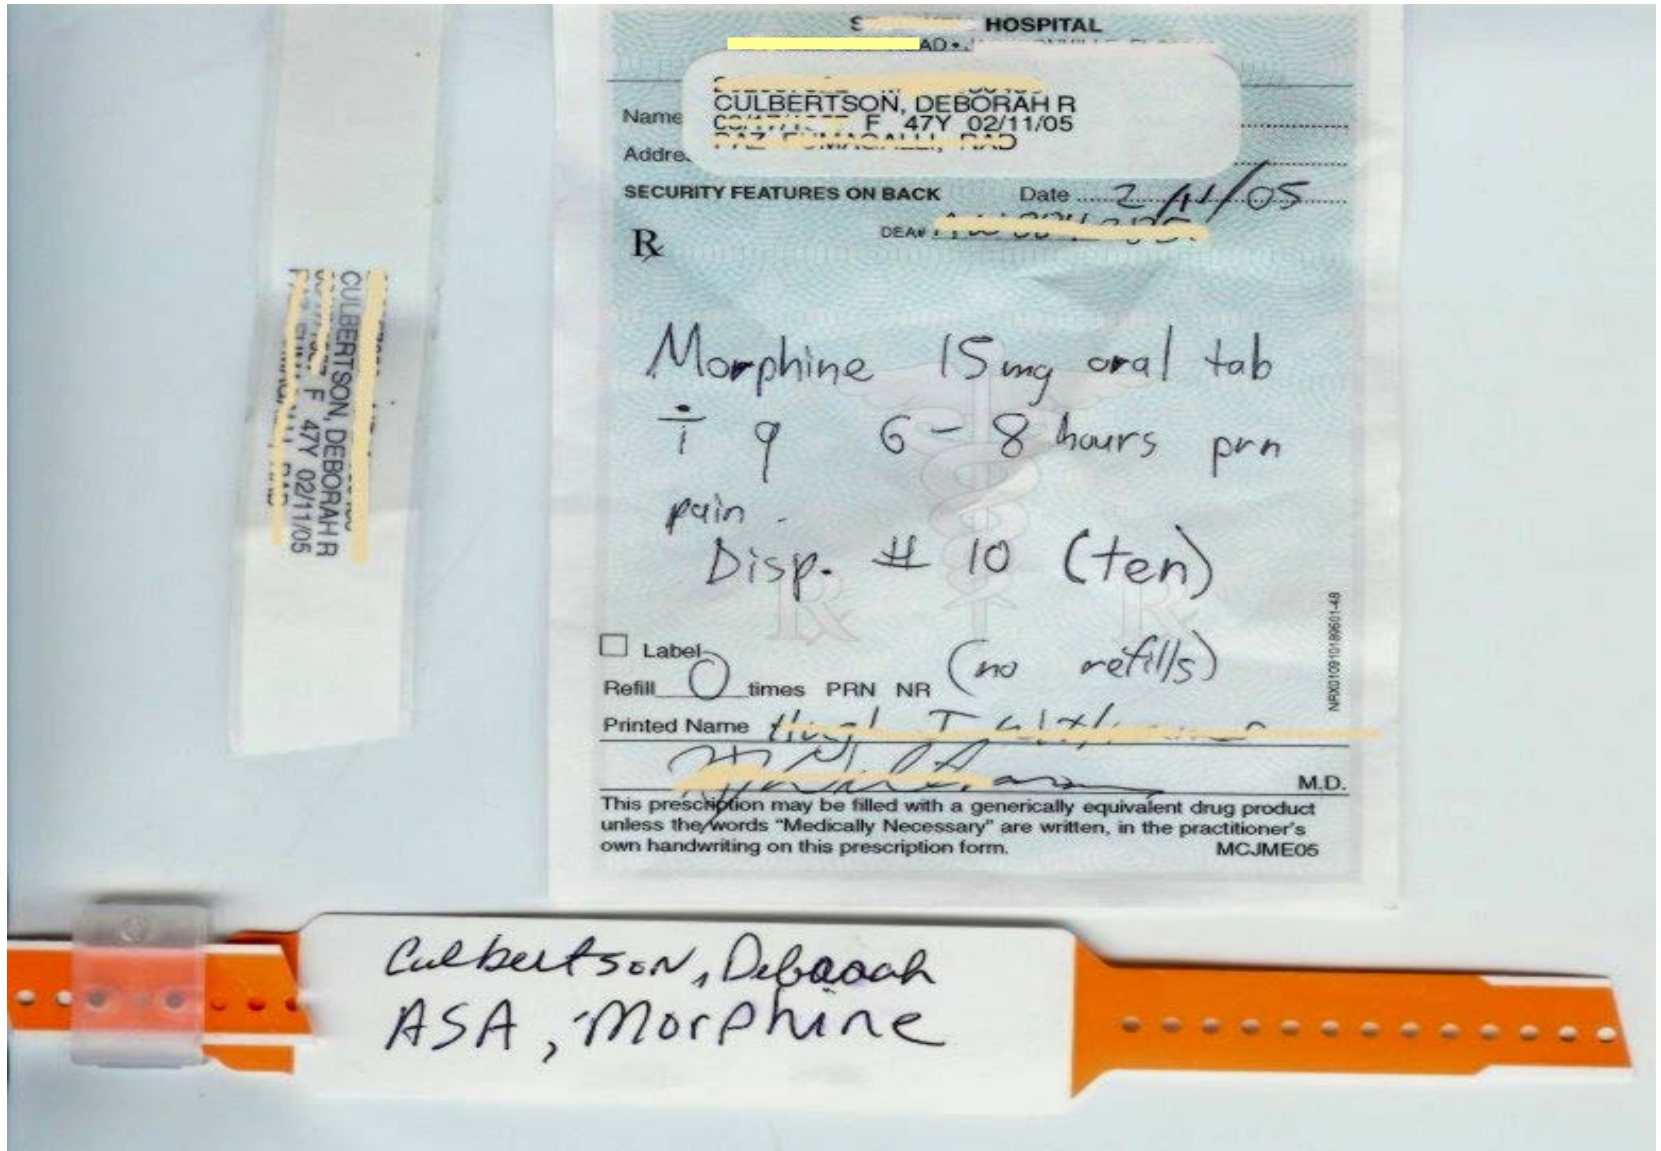 HOSPITAL
CULBERTSON, DEBORAH R
F 47Y 02/11/05
Name
Addre
SECURITY FEATURES ON BACK Date 2/11/05
DEA#
Rx
Morphine 15mg oral tab
i q 6-8 hours prn
pain.
Disp. # 10 (ten)
Label
(no refills)
Refill 0 times PRN NR
Printed Name
M.D.
This prescription may be filled with a generically equivalent drug product
unless the words "Medically Necessary" are written, in the practitioner's
own handwriting on this prescription form. MCJME05
CULBERTSON, DEBORAH R
F 47Y 02/11/05
Culbertson, Deborah
ASA, Morphine